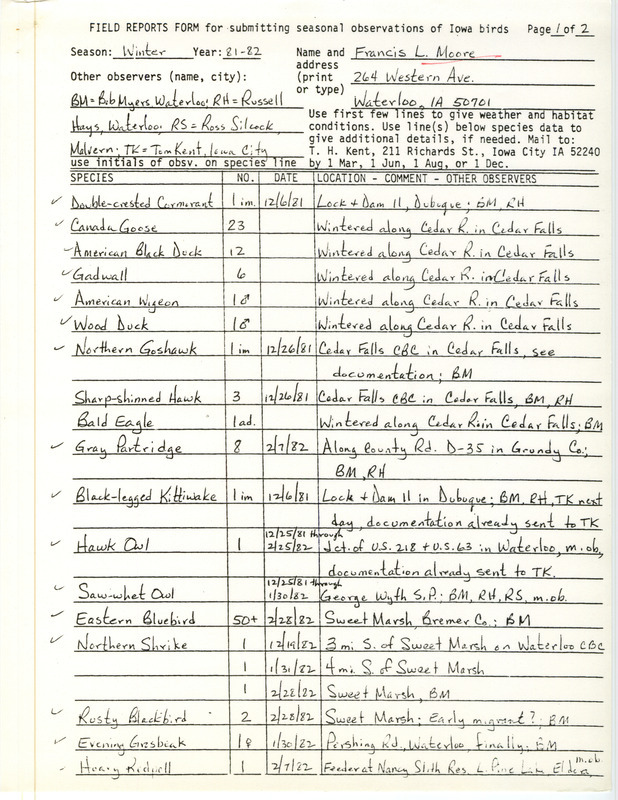 FIELD REPORTS FORM for submitting seasonal observations of Iowa birds Page 1 of 2
Season: Winter Year: 81-82 Name and Francis L. Moore
address
Other observers (name, city): (print 264 Western Ave.
or type)
BM = Bob Myers, Waterloo; RH = Russell Waterloo, IA 50701
Hays, Waterloo; RS = Ross Silcock, Use first few lines to give weather and habitat
conditions. Use line(s) below species data to
Malvern; TK = Tom Kent, Iowa City give additional details, if needed. Mail to:
T. H. Kent, 211 Richards St., Iowa City IA 52240
use initials of obsv. on species line by 1 Mar, 1 Jun, 1 Aug, or 1 Dec.
SPECIES NO. DATE LOCATION - COMMENT - OTHER OBSERVERS
✓ Double-crested Cormorant 1 im. 12/6/81 Lock + Dam 11, Dubuque; BM, RH
✓ Canada Goose 23 Wintered along Cedar R. in Cedar Falls
✓ American Black Duck 12 Wintered along Cedar R. in Cedar Falls
✓ Gadwall 6 Wintered along Cedar R. in Cedar Falls
✓ American Wigeon 1♂ Wintered along Cedar R. in Cedar Falls
✓ Wood Duck 1♂ Wintered along Cedar R. in Cedar Falls
✓ Northern Goshawk 1 im 12/26/81 Cedar Falls CBC in Cedar Falls, see
documentation; BM
Sharp-shinned Hawk 3 12/26/81 Cedar Falls CBC in Cedar Falls, BM, RH
Bald Eagle 1 ad. Wintered along Cedar R. in Cedar Falls; BM
✓ Gray Partridge 8 2/7/82 Along County Rd. D-35 in Grundy Co.;
BM, RH
✓ Black-legged Kittiwake 1 im 12/6/81 Lock + Dam 11 in Dubuque; BM, RH, TK next
day, documentation already sent to TK
12/25/81 through
✓ Hawk Owl 1 2/25/82 Jct. of U.S. 218 + U.S. 63 in Waterloo, m.ob,
documentation already sent to TK.
12/25/81 through
✓ Saw-whet Owl 1/30/82 George Wyth S.P.; BM, RH, RS, m.ob.
✓ Eastern Bluebird 50+ 2/28/82 Sweet Marsh, Bremer Co.; BM
✓ Northern Shrike 1 12/19/82 3 mi S. of Sweet Marsh on Waterloo CBC
1 1/31/82 4 mi. S. of Sweet Marsh
1 2/28/82 Sweet Marsh, BM
✓ Rusty Blackbird 2 2/28/82 Sweet Marsh; Early migrant?; BM
✓ Evening Grosbeak 1♀ 1/30/82 Pershing Rd., Waterloo, finally; BM
✓ Hoary Redpoll 1 2/7/82 Feeder at Nancy Res. L. Pine Lake Eldora, m.ob.